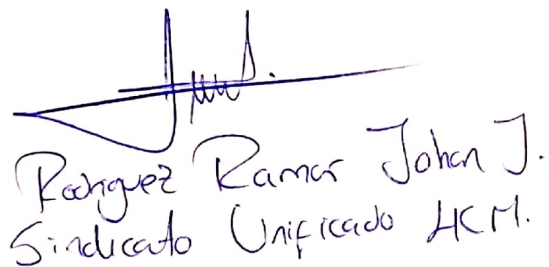 Rodriguez Ramos Johan J.
Sindicato Unificado HCM.